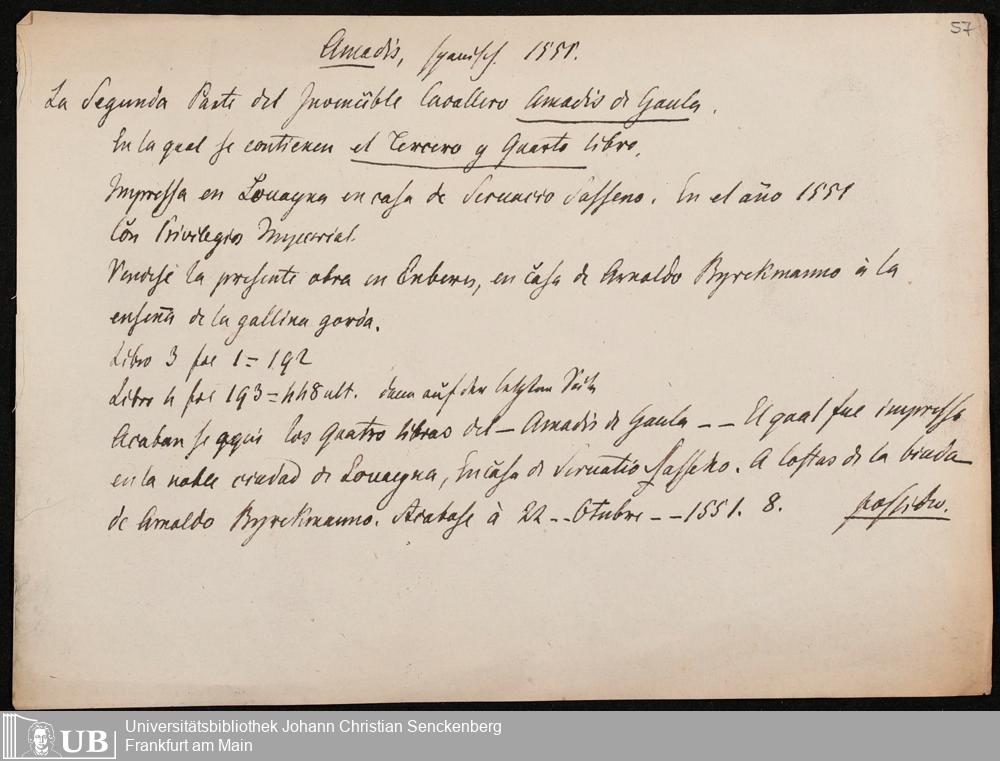 57
Amadis, spanisch. 1551.
La Segunda Parte del Invencible Cavallero Amadis de Gaula.
En la qual se contienen el Tercero y Quarto libro.
Impressa en Louayna en casa de Servacio Sasseno. En el año 1551
Con Privilegio Imperial.
Vendese la presente obra en Enberes, en casa de Arnoldo Byrckmanno à la
enseña de la gallina gorda.
Libro 3 fol 1 = 192
Libro 4 fol 193 = 448 ult. dann auf der letzten Seite
Acaban se aqui los Quatro libros del – Amadis de Gaula – – El qual fue impresso
en la noble ciudad de Louayna, En casa de Servatio Sasseno. A costas de la biuda
de Arnoldo Byrckmanno. Acabose à 22 – – Otubre – – 1551. 8. possideo.
UB
Universitätsbibliothek Johann Christian Senckenberg
Frankfurt am Main